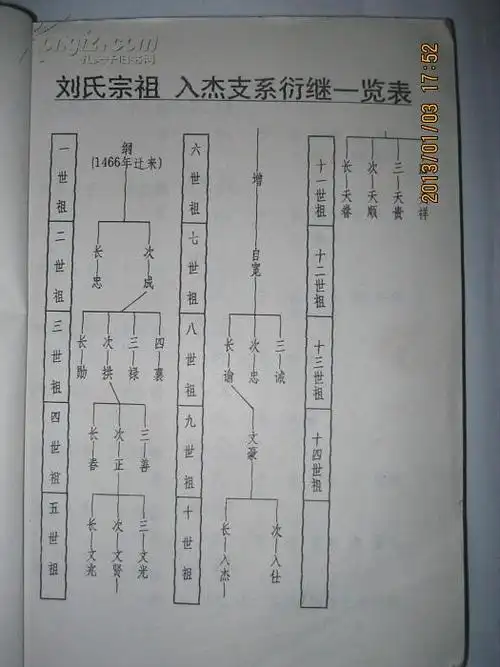 kongfz.com
刘氏宗祖 入杰支系衍继一览表
2013/01/03 17:52
一世祖
纲
(1466年迁来)
二世祖
长 忠
次 成
三世祖
长 勋
次 拱
三 禄
四 襄
四世祖
长 春
次 正
三 善
五世祖
长 文光
次 文贤
三 文光
六世祖
增
七世祖
自宽
八世祖
长 谕
次 忠
三 诚
九世祖
文豪
十世祖
长 入杰
次 入仕
十一世祖
长 天眷
次 天顺
三 天贵
祥
十二世祖
十三世祖
十四世祖